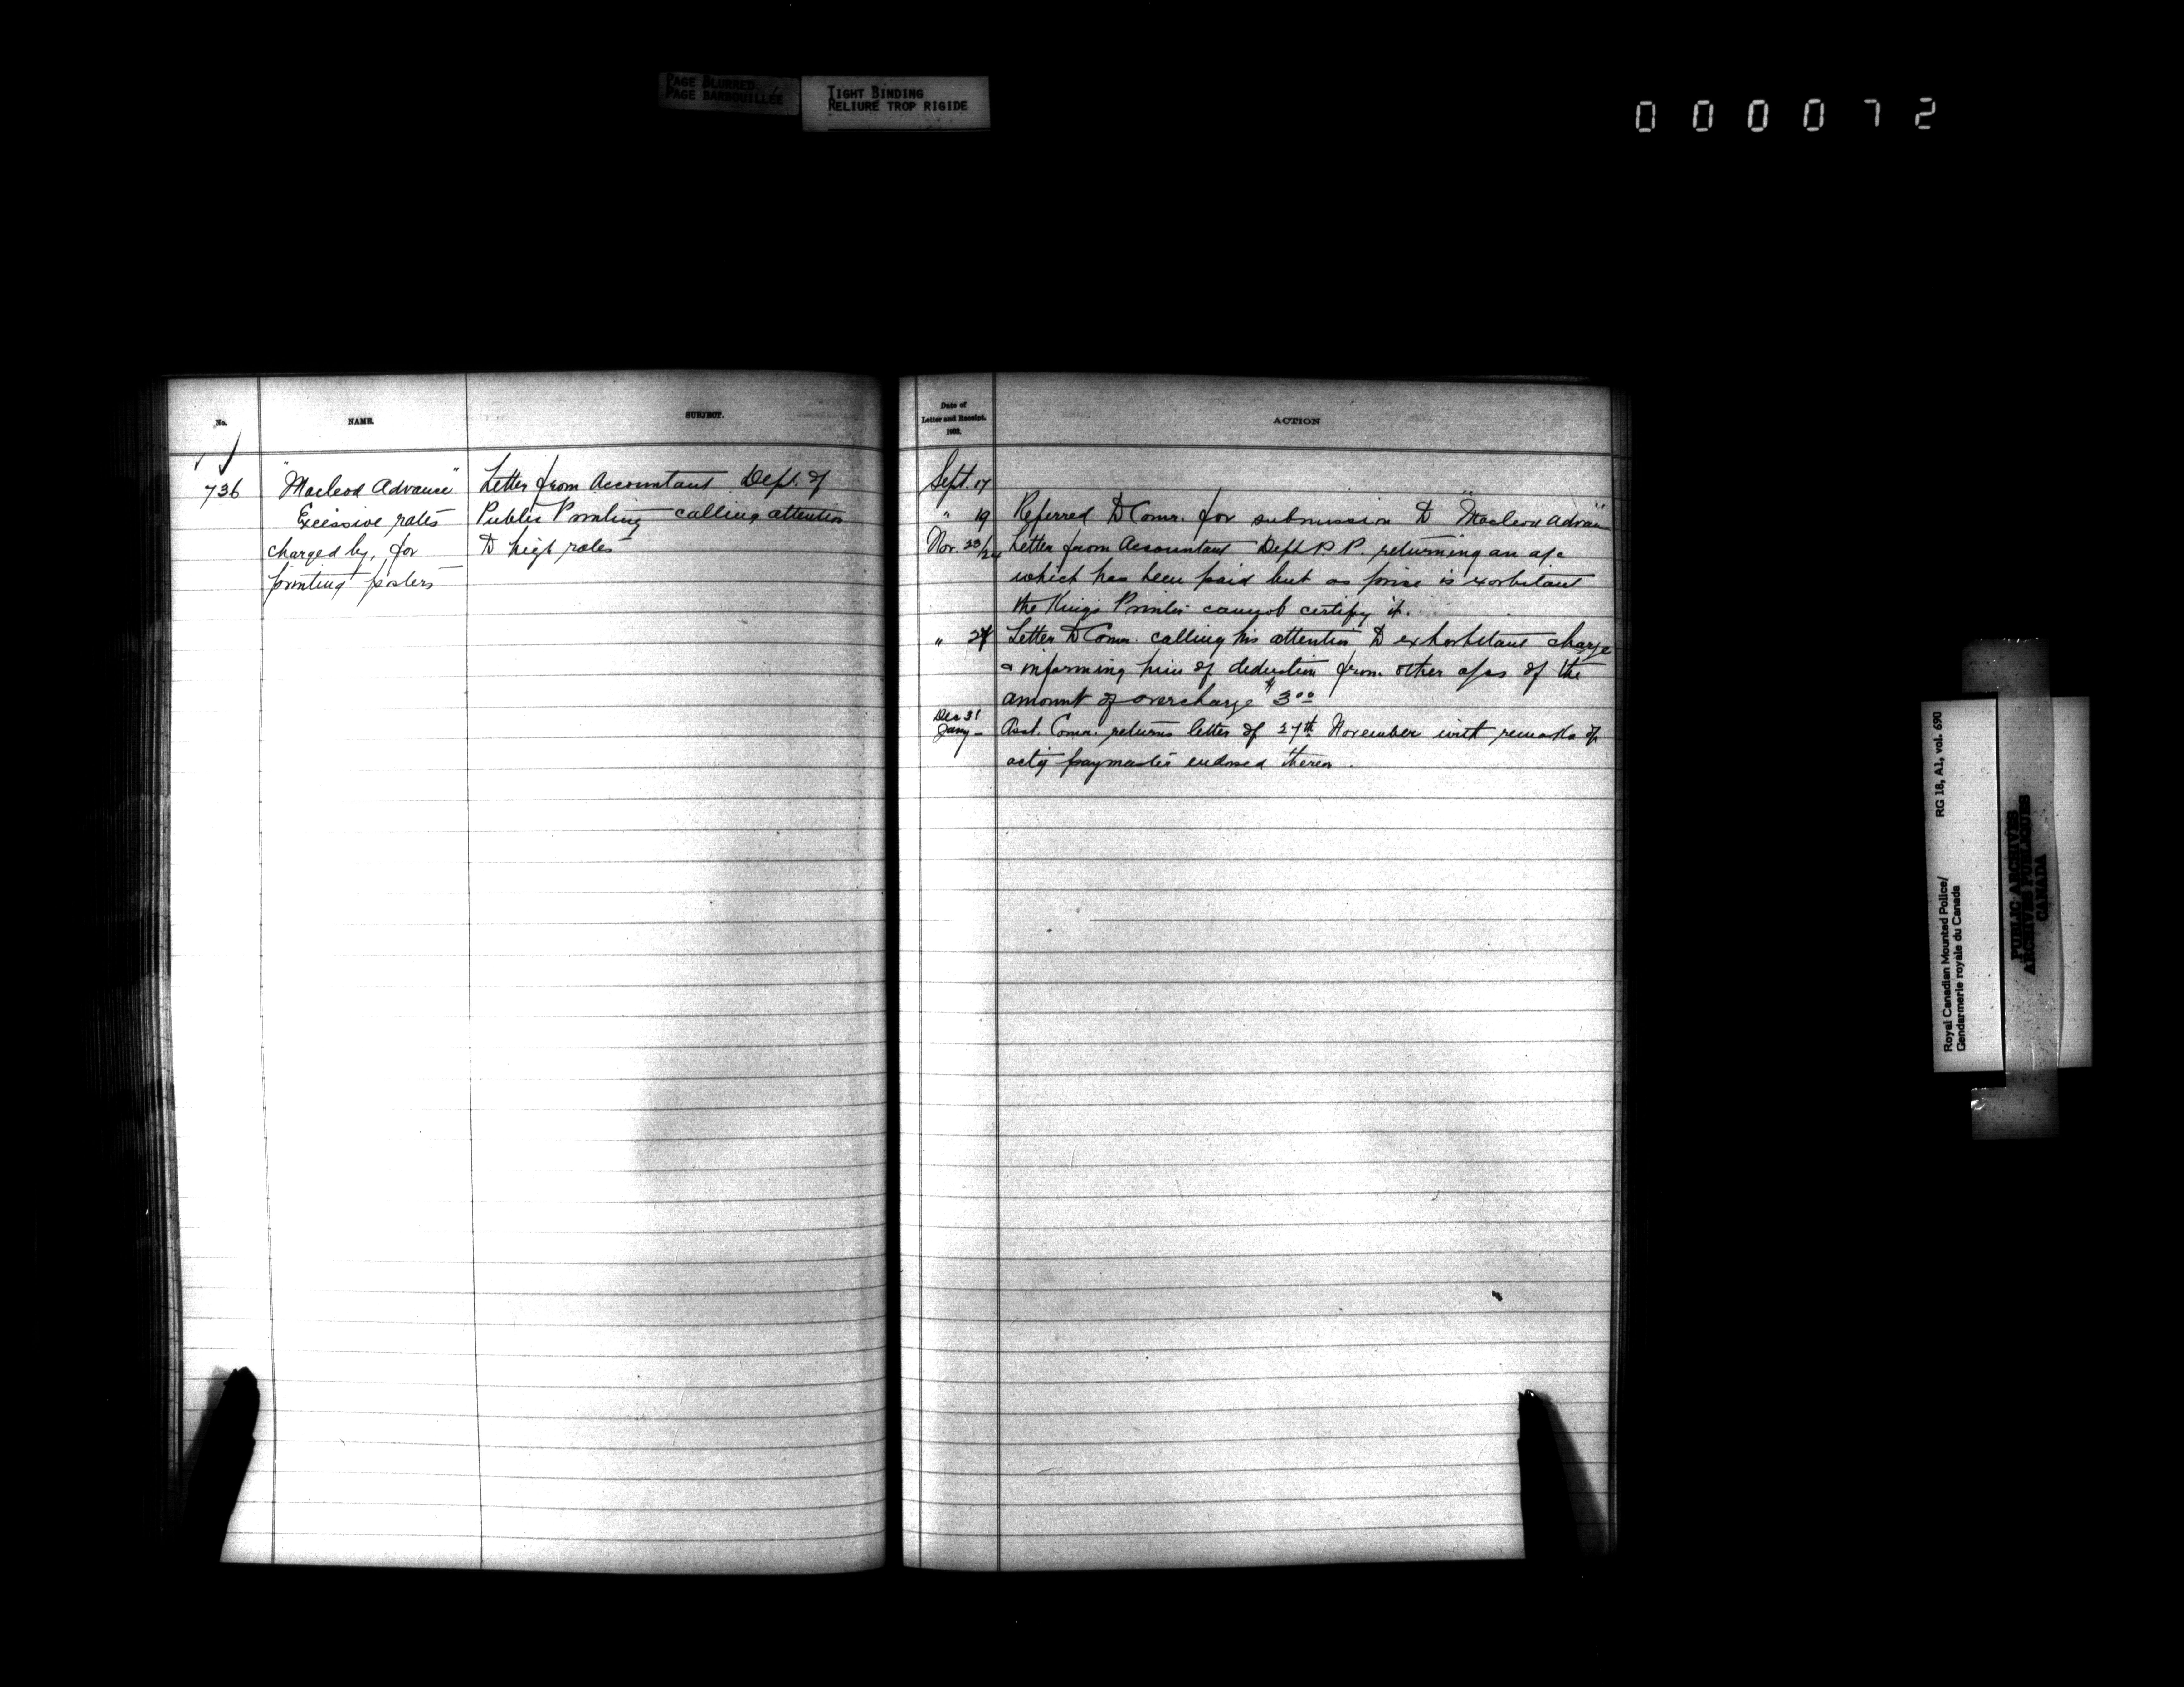 PAGE BLURRED
PAGE BARBOUILLÉE
TIGHT BINDING
RELIURE TROP RIGIDE
000072
No.
NAME.
SUBJECT.
736
"Macleod Advance"
Excessive rates
charged by, for
printing posters
Letter from Accountant Dept. of
Public Printing calling attention
to high rates
Date of
Letter and Receipt.
ACTION
Sept. 17
" 19 Referred to Comr. for submission to "Macleod Advance"
Nov. 23/24 Letter from Accountant Dept P. P. returning an a/c
which has been paid but as price is exorbitant
the King's Printer cannot certify it.
" 27 Letter to Comr. calling his attention to exhorbitant charge
& informing him of deduction from other a/cs of the
amount of overcharge $3.00
Dec 31
Jany - Asst. Comr. returns letter of 27th November with remarks of
actg paymaster endorsed thereon.
RG 18, A1, vol. 690
Royal Canadian Mounted Police/
Gendarmerie royale du Canada
PUBLIC ARCHIVES
ARCHIVES PUBLIQUES
CANADA